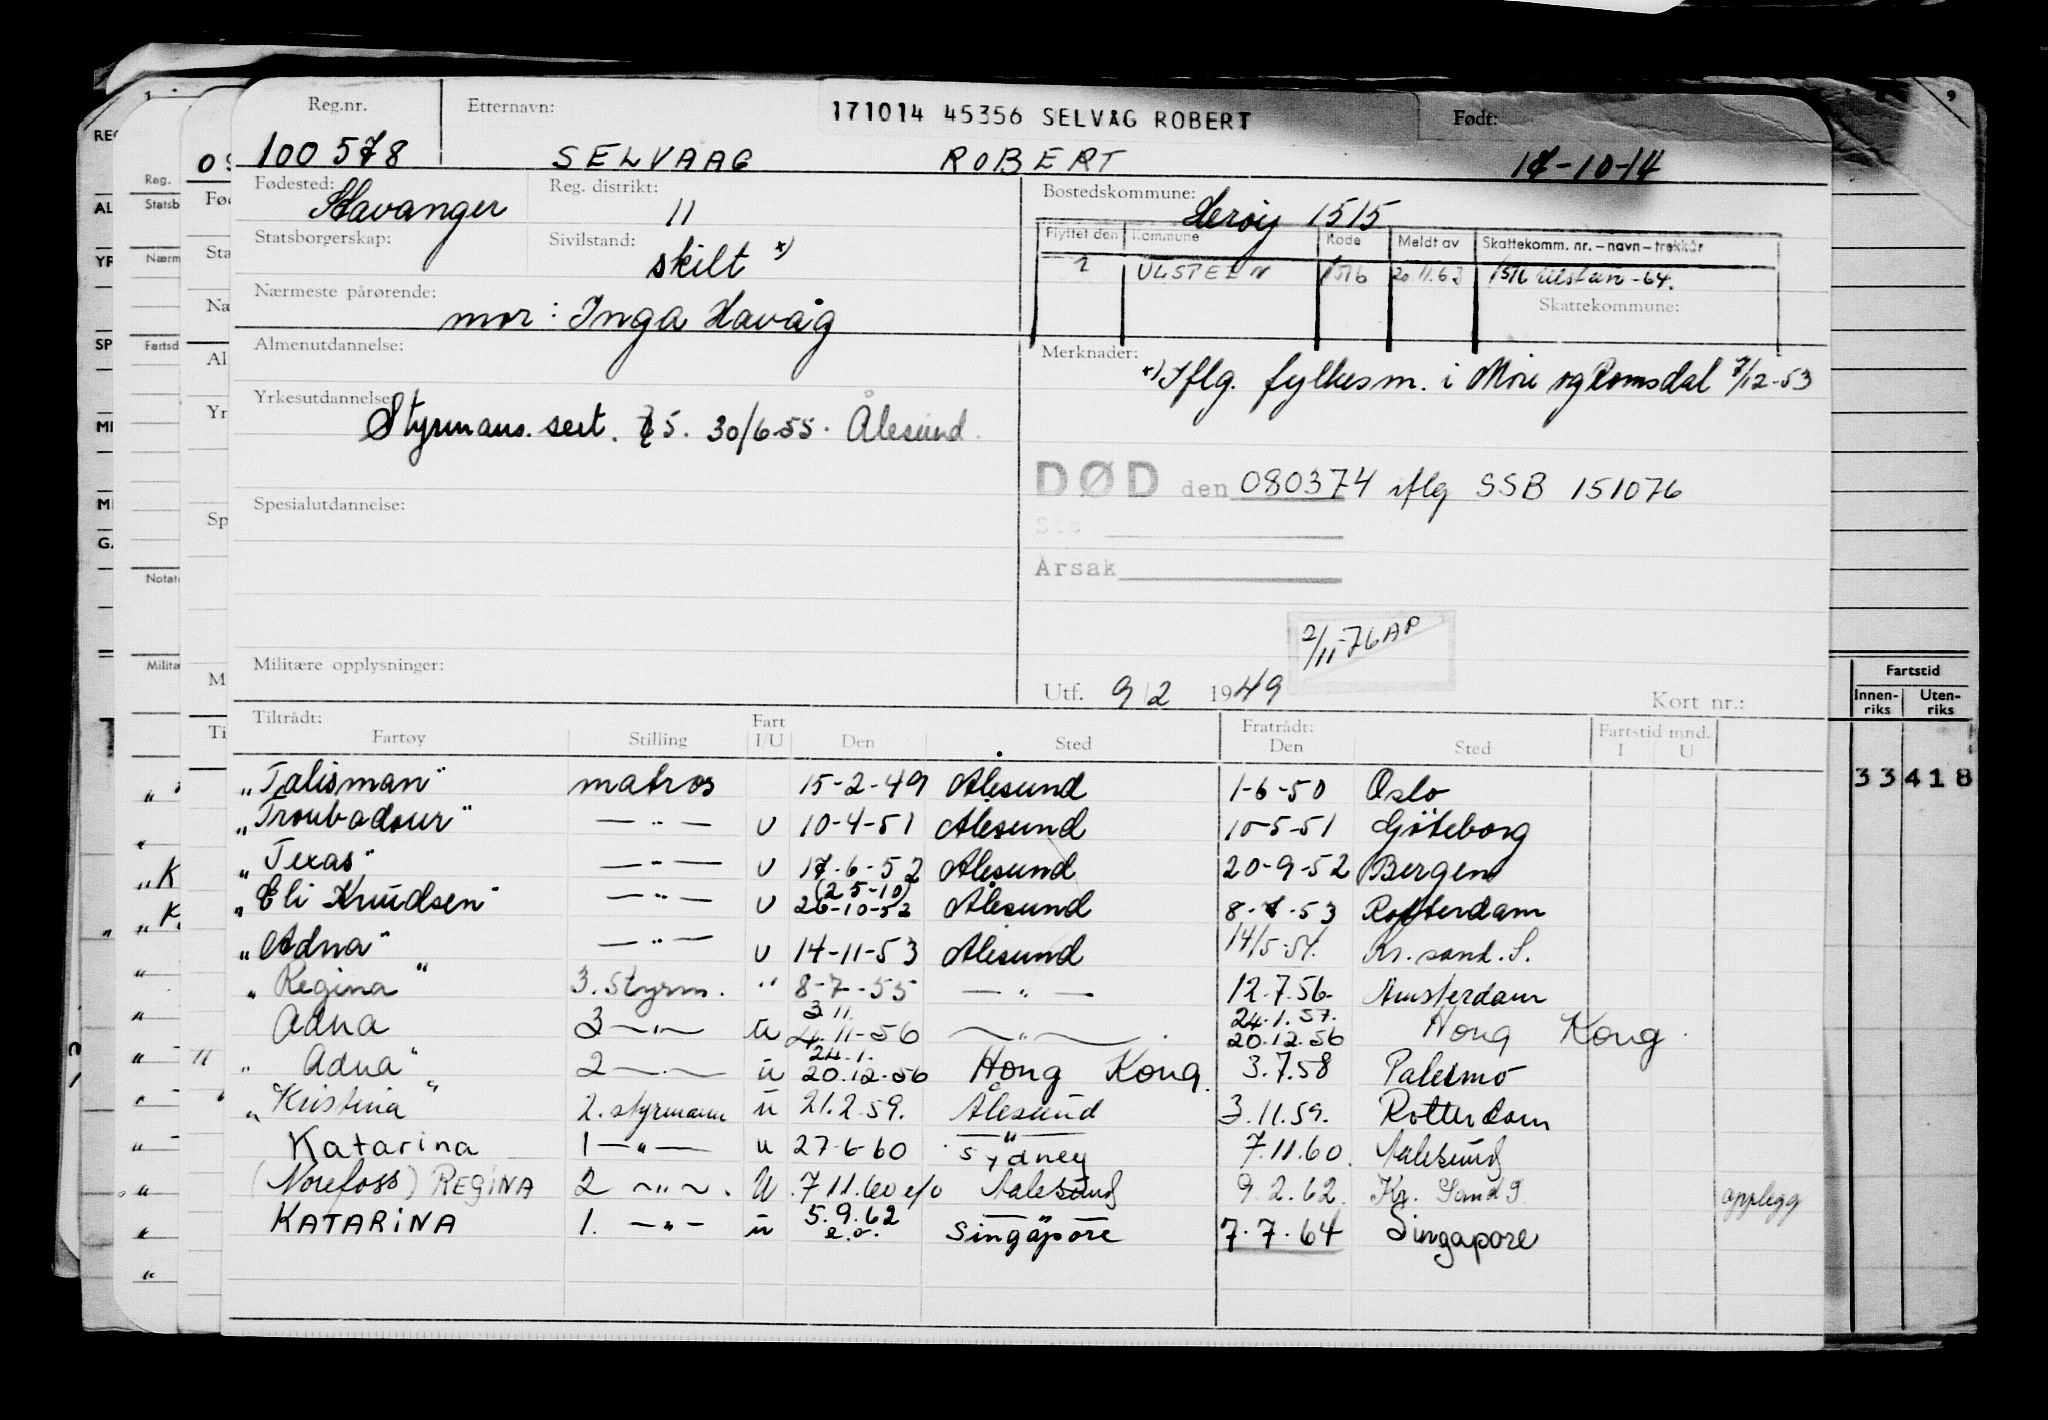 Reg.nr. Etternavn: 171014 45356 SELVÅG ROBERT Født:
100578 SELVAAG ROBERT 17-10-14
Fødested: Stavanger Reg. distrikt: 11 Bostedskommune: Herøy 1515
Statsborgerskap: Sivilstand: skilt *)
Flyttet den Kommune Kode Meldt av Skattekomm. nr. – navn – trekkår
ULSTEIN 1516 20.11.63 1516 Ulstein -64.
Skattekommune:
Nærmeste pårørende: mor: Inga Havåg
Almenutdannelse:
Merknader: *) Iflg. fylkesm. i Møre og Romsdal 7/12-53
Yrkesutdannelse: Styrmans. sert. 30/6-55. Ålesund.
DØD den 080374 iflg SSB 151076
Spesialutdannelse:
Ste
Årsak
2/11-76 AP
Militære opplysninger:
Utf. 9/2 1949 Kort nr.:
Tiltrådt: Fartøy Stilling Fart I/U Den Sted Fratrådt: Den Sted Fartstid mnd. I U
"Talisman" matros 15-2-49 Ålesund 1-6-50 Oslo
"Troubadour" — " — U 10-4-51 Ålesund 10-5-51 Göteborg
"Texas" — " — U 17-6-52 Ålesund 20-9-52 Bergen
"Eli Knudsen" — " — U (25-10) 26-10-52 Ålesund 8- -53 Rotterdam
"Adna" — " — U 14-11-53 Ålesund 14/5-54. Kr. sand. S.
"Regina" 3. Styrm. " 8-7-55 — " — 12.7.56 Amsterdam
Adna 3 — " — u 3.11. 4.11-56 — " — 24.1.57. 20.12.56 Hong Kong.
"Adna" 2 — " — u 24.1. 20.12.56 Hong Kong. 3.7.58 Palermo
"Kristina" 2. styrmann u 21.2.59. Ålesund 3.11.59. Rotterdam
Katarina 1 — " — u 27-6-60 Sydney 7.11.60. Aalesund
(Norefoss) REGINA 2 — " — . U. 7.11.60 e/o Aalesund 9.2.62. Kr. Sand S. opplegg
KATARINA 1. — " — u 5.9.62 e.o. Singapore 7.7.64 Singapore
Fartstid
Innenriks Utenriks
33 418